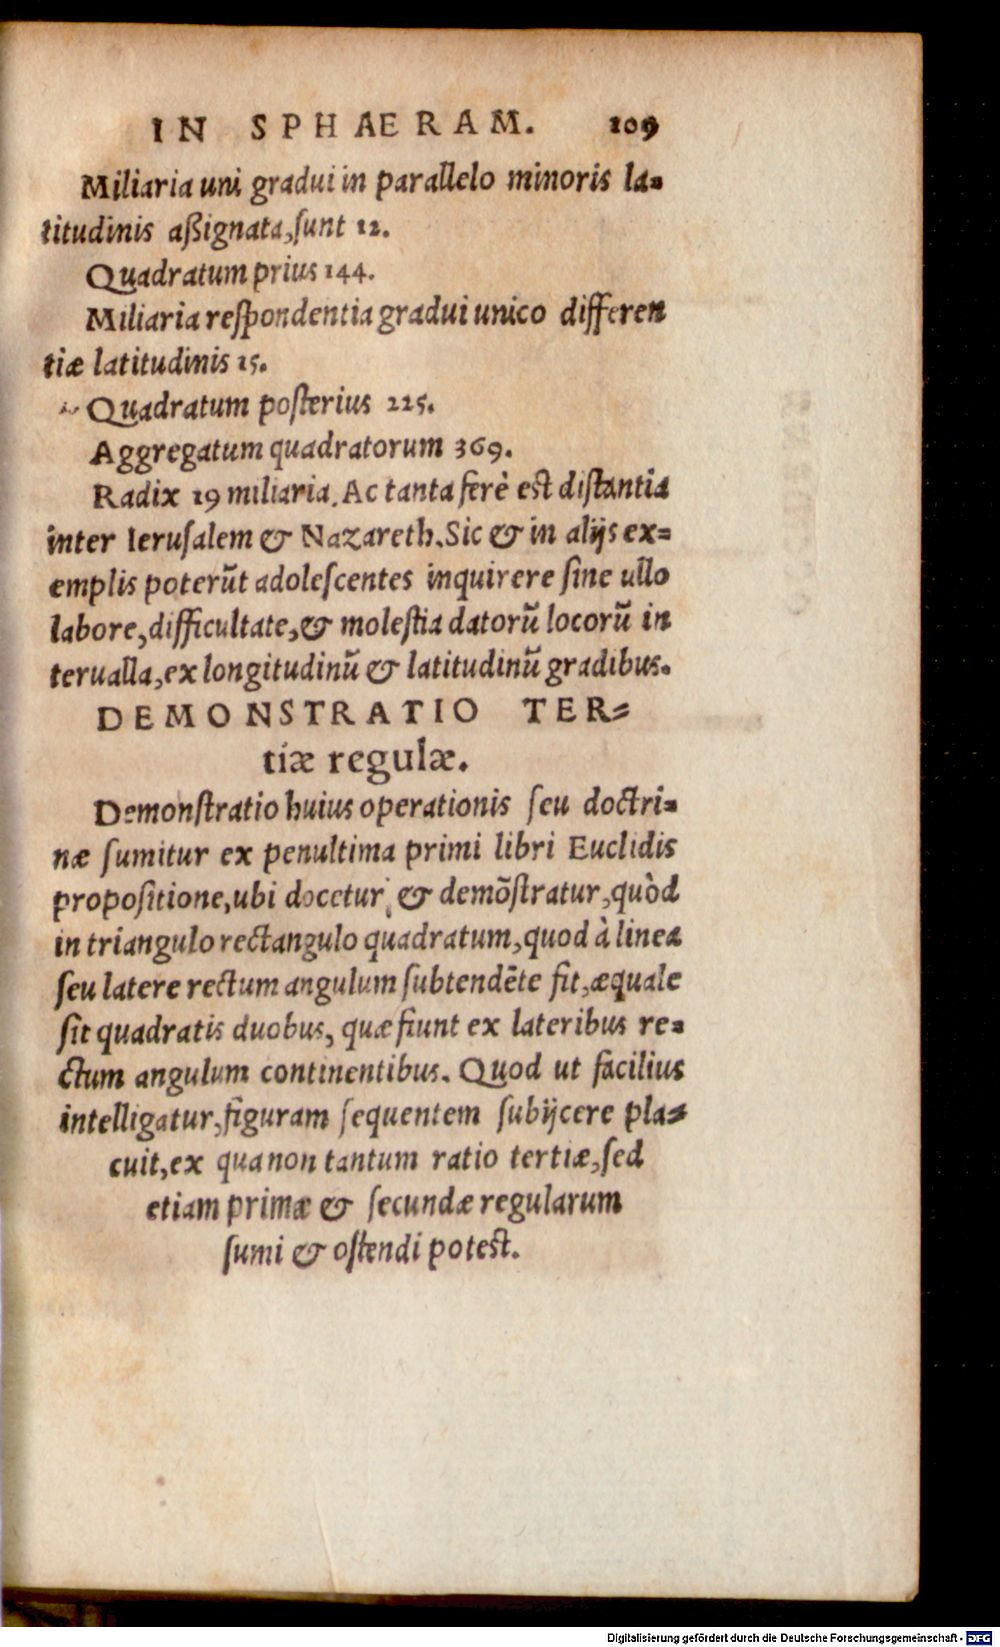 IN SPHAERAM. 109
Miliaria uni gradui in parallelo minoris la-
titudinis aßignata, ſunt 12.
Quadratum prius 144.
Miliaria reſpondentia gradui unico differen
tiæ latitudinis 15.
Quadratum poſterius 225.
Aggregatum quadratorum 369.
Radix 19 miliaria. Ac tanta ferè est diſtantia
inter Ieruſalem & Nazareth. Sic & in alijs ex=
emplis poterūt adoleſcentes inquirere ſine ullo
labore, difficultate, & moleſtia datorū locorū in
terualla, ex longitudinū & latitudinū gradibus.
DEMONSTRATIO TER=
tiæ regulæ.
Demonſtratio huius operationis ſeu doctri=
næ ſumitur ex penultima primi libri Euclidis
propoſitione, ubi docetur & demōſtratur, quòd
in triangulo rectangulo quadratum, quod à linea
ſeu latere rectum angulum ſubtendēte fit, æquale
ſit quadratis duobus, quæ fiunt ex lateribus re=
ctum angulum continentibus. Quod ut facilius
intelligatur, figuram ſequentem ſubijcere pla=
cuit, ex qua non tantum ratio tertiæ, ſed
etiam primæ & ſecundæ regularum
ſumi & oſtendi potest.
Digitalisierung gefördert durch die Deutsche Forschungsgemeinschaft - DFG